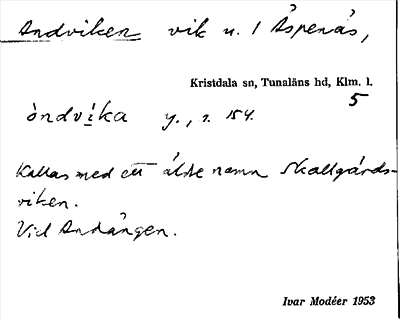 Andviken vik n. l Äspenäs,
Kristdala sn, Tunaläns hd, Klm. l.
5
àndvíka y., s. 154.
Kallas med ett äldre namn Skallgårds-
viken.
Vid Andängen.
Ivar Modéer 1953